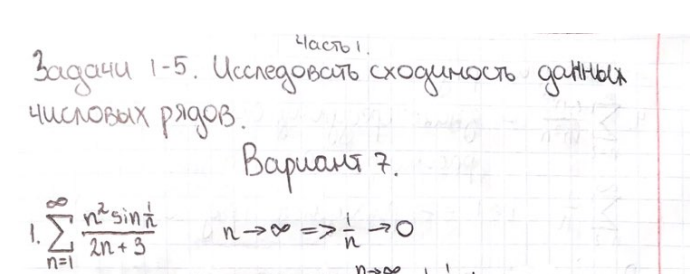 Часть 1.
Задачи 1-5. Исследовать сходимость данных
числовых рядов.
Вариант 7.
1. ∑_{n=1}^{∞} \frac{n² sin \frac{1}{n}}{2n+3} n→∞ => \frac{1}{n} →0
n→∞